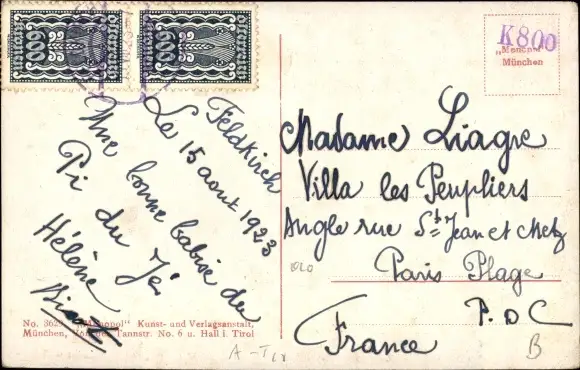 600
600
K800
"Monopol"
München
Feldkirch
Le 15 août 1923
Une bonne babise du
Pi du Jé
Hélène
Madame Liagre
Villa les Peupliers
Angle rue St Jean et Metz
Paris Plage
P. D C
France
No. 362 "Monopol" Kunst- und Verlagsanstalt,
München, Tannstr. No. 6 u. Hall i. Tirol
B